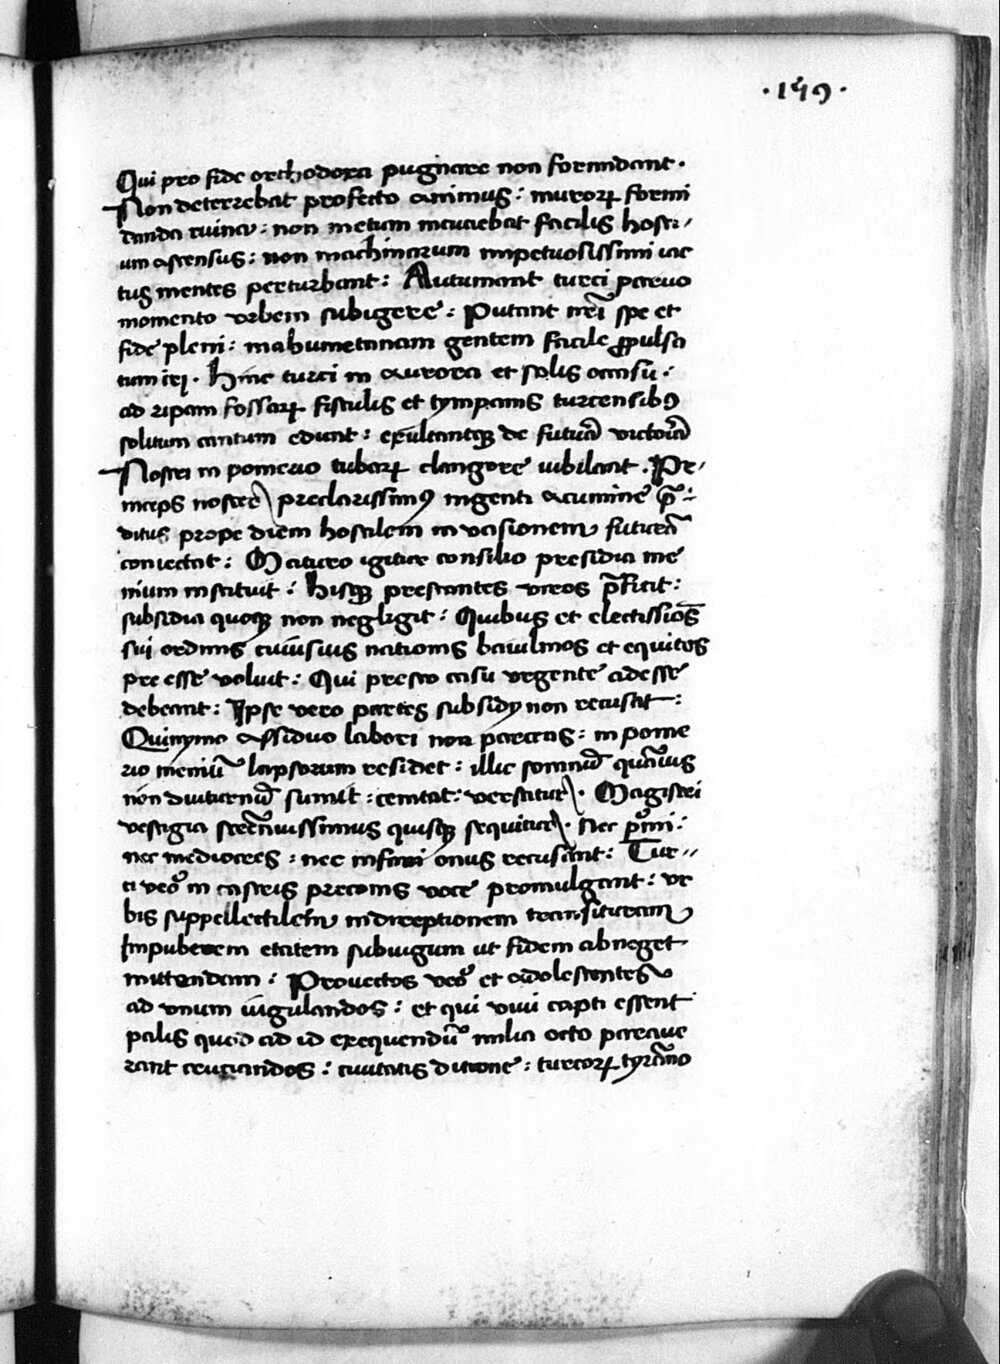 ·159·
Qui pro fide orthodoxa pugnare non formidant·
Non deterrebat profecto animus: muroꝝ formi
danda ruina: non metum incuciebat facilis hosti-
um ascensus: non machinarum impetuosissimi iac
tus mentes perturbant: Autumant turci paruo
momento vrbem subigere: Putant nr̃i spe et
fide pleni: mahumetanam gentem facile ꝓpulsa
tum iri· Hinc turci in aurora et solis occasu:
ad ripam fossaꝝ fistulis et tympanis turcensibꝰ
solitum cantum edunt: exultantqꝫ de futurã victoriã
Nostri in pomerio tubaꝝ clangore iubilant. Prin-
ceps noster preclarissimꝰ ingenti acumine p̃-
ditus prope diem hostilem in vasionem futurã
coniectat: Maturo igitur consilio presidia me
nium instituit: hisqꝫ prestantes viros p̃ficit:
subsidia quoqꝫ non negligit: Quibus et electissiõs
sui ordinis cuiusuis nationis baiuliuos et equites
pre esse voluit: Qui presto casu vrgente adesse
debeant: Ipse vero partes subsidy non recusat:
Quinymo assiduo labori non parcens: in pome
rio meniũ lapsorum residet: illic somnũ quãuis
non diuturnũ sumit: cenitat: versatur. Magistri
vestigia strẽnuissimus quisqꝫ sequitur. Nec p̃mi:
nec mediocres: nec infimi onus recusant: Tur-
ci veõ in castris preconis voce promulgant: vr
bis suppellectilem in direptionem transituram
Impuberem etatem subiugum ut fidem abneget
mittendam: Prouectos veõ et adolescentes
ad vnum iugulandos: et qui viui capti essent
palis quod ad id exequendũ milia octo paraue
rant cruciandos: ciuitatis ditione: turcoꝝ tyrãno